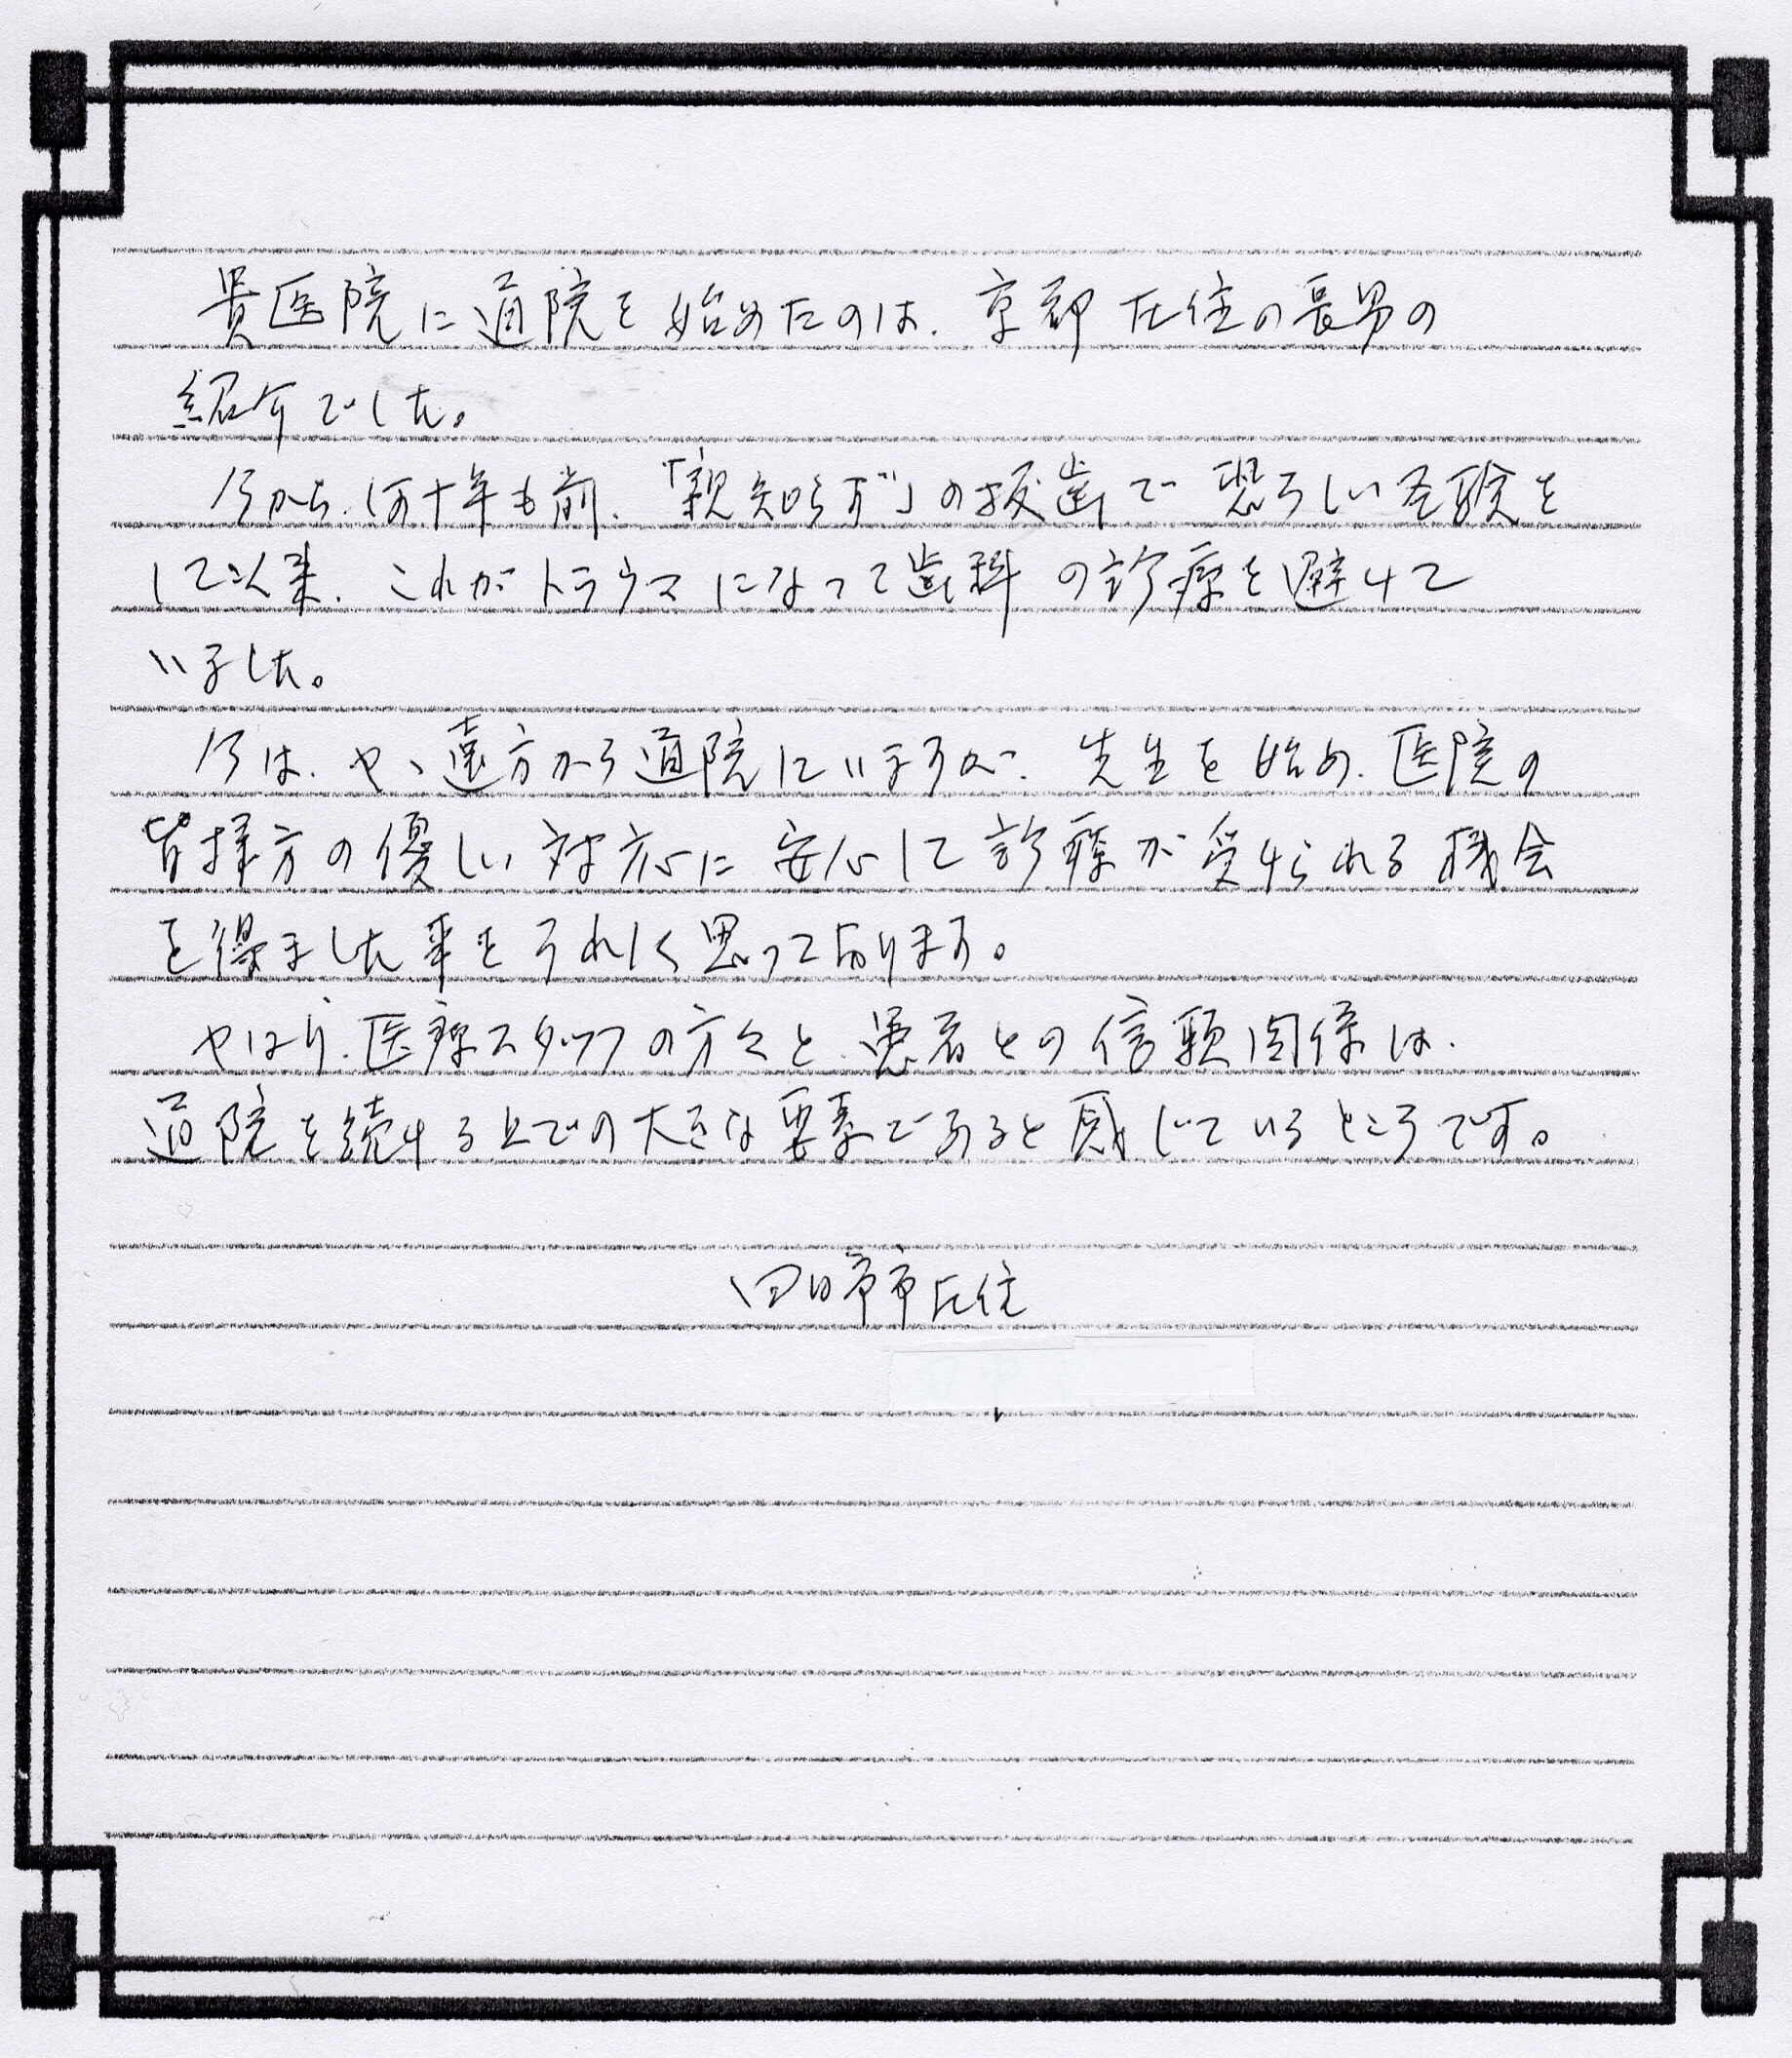 貴医院に通院を始めたのは、京都在住の長男の
紹介でした。
今から、何十年も前、「親知らず」の抜歯で恐ろしい経験を
して以来、これがトラウマになって歯科の診療を避けて
いました。
今は、やゝ遠方から通院していますが、先生を始め、医院の
皆様方の優しい対応に安心して診療が受けられる機会
を得ました事をうれしく思っております。
やはり、医療スタッフの方々と、患者との信頼関係は、
通院を続ける上での大きな要素であると感じているところです。
四日市市在住